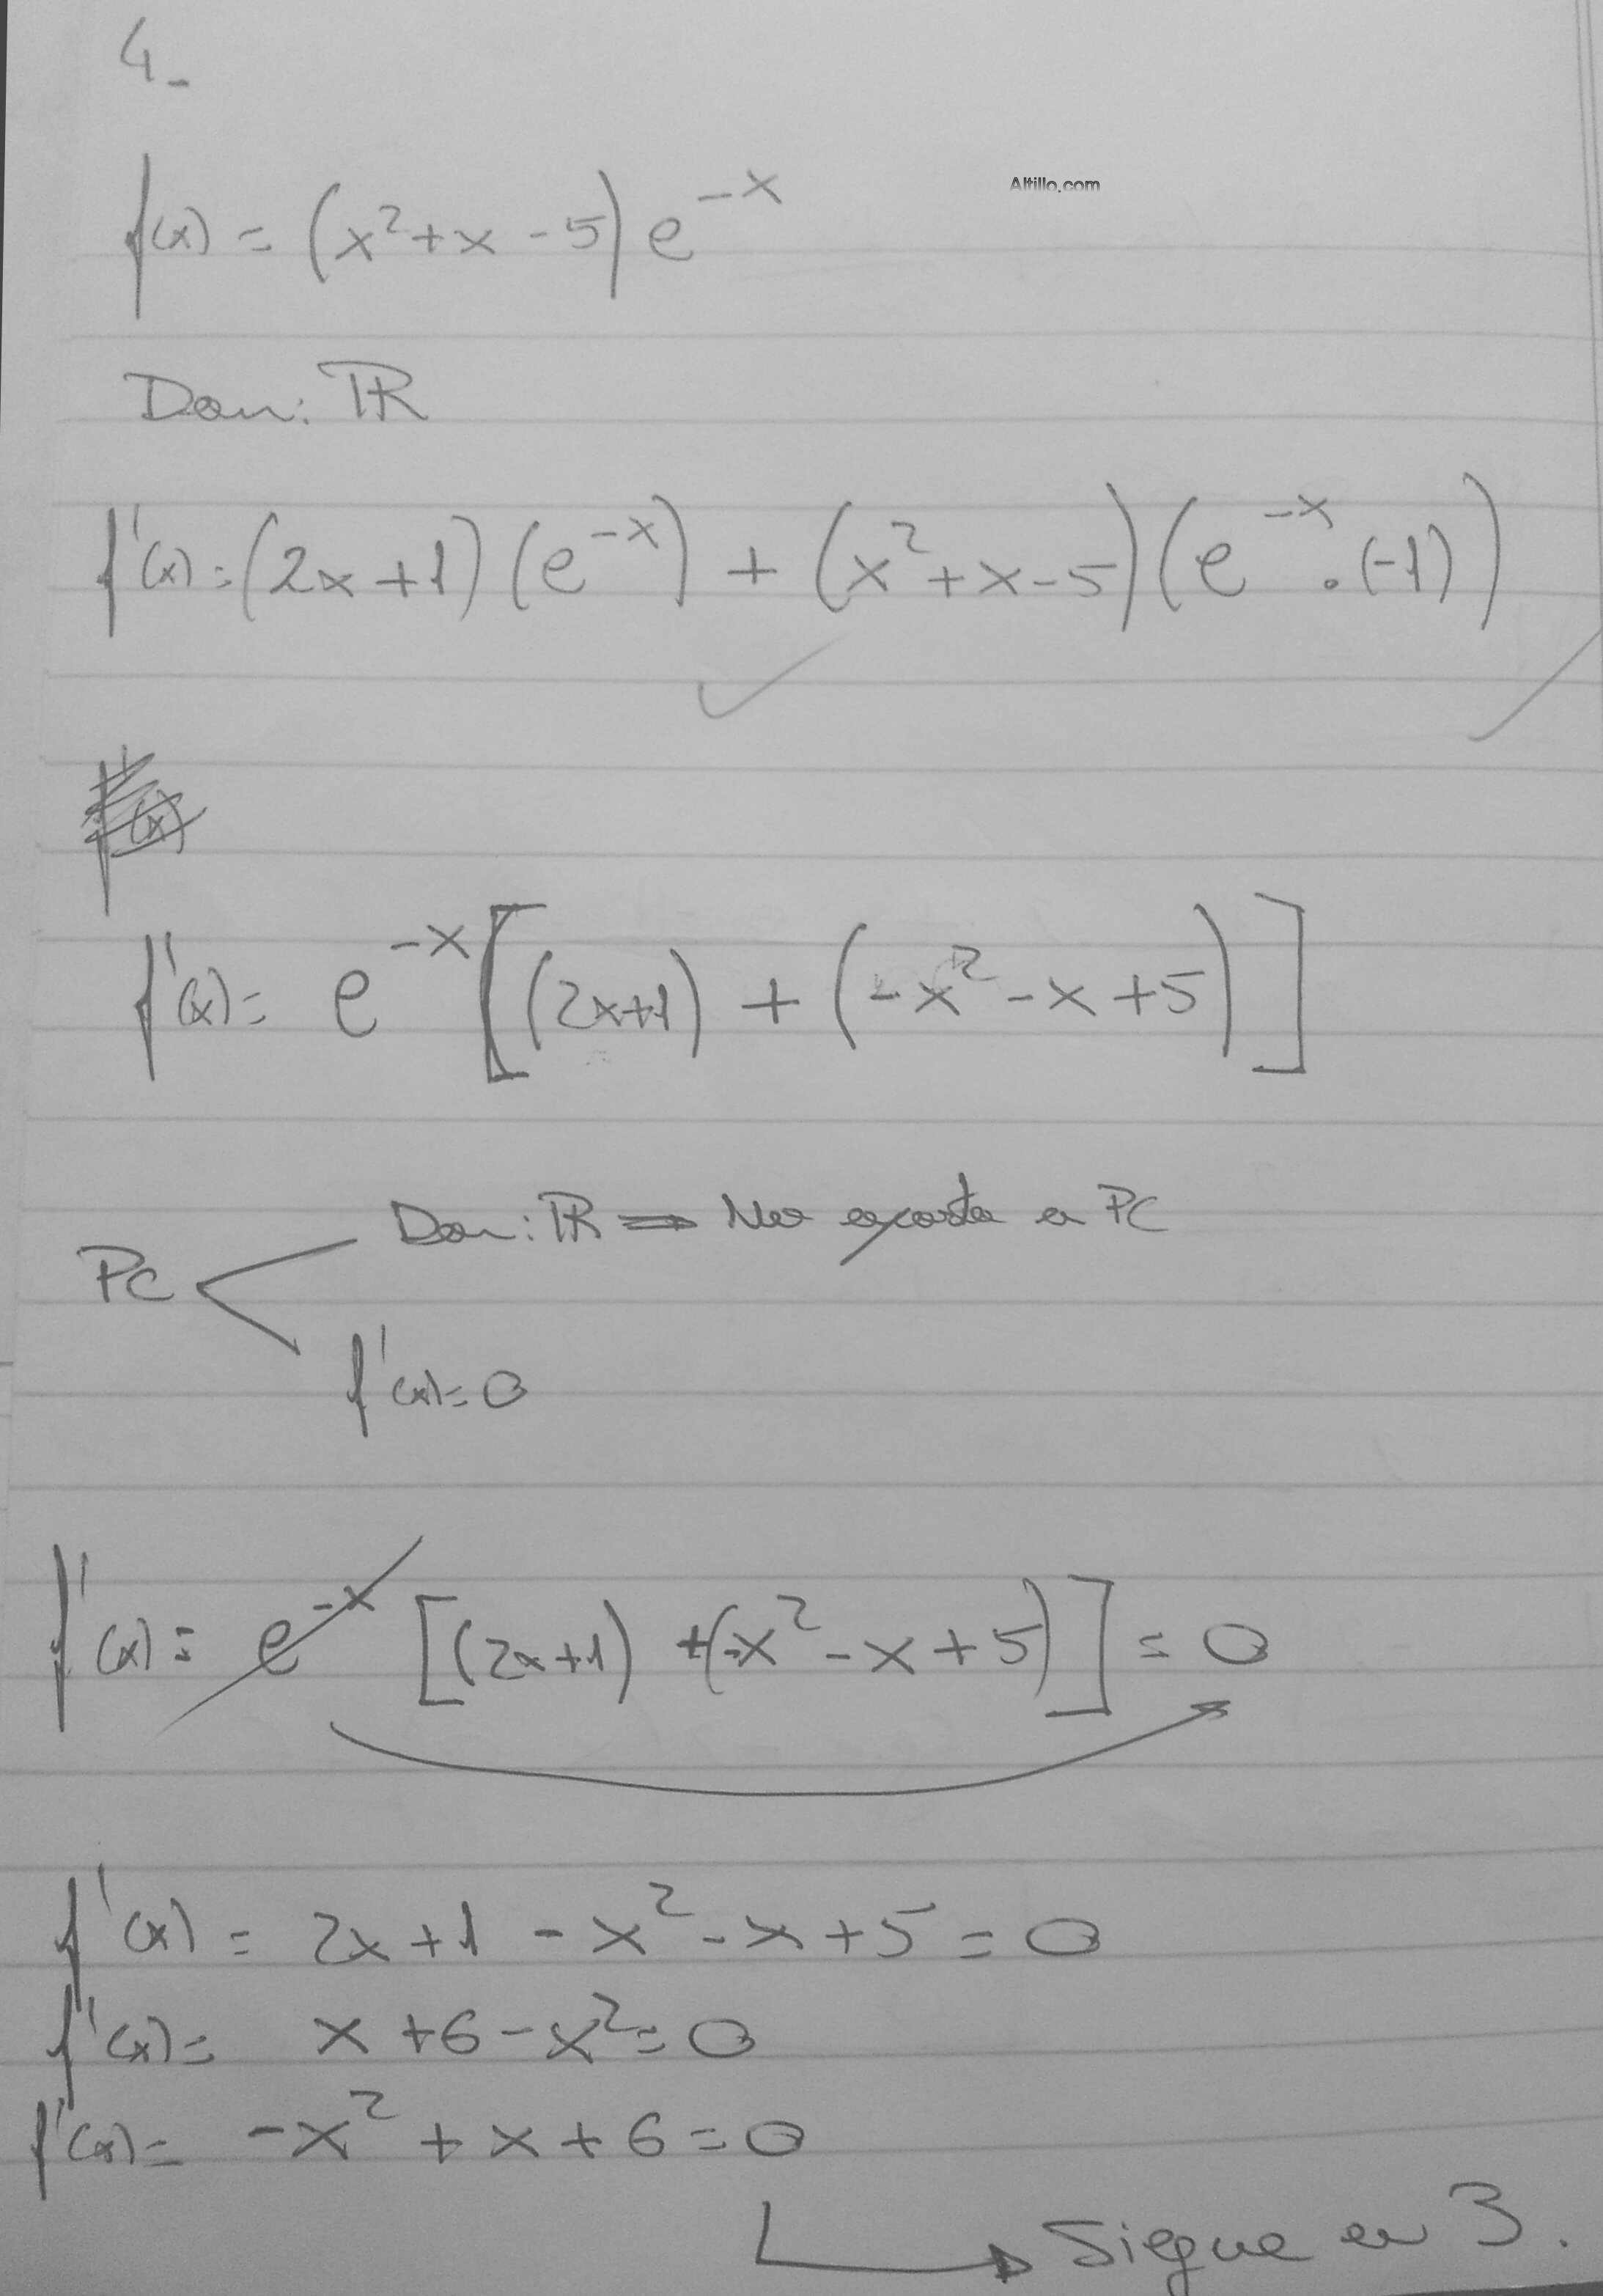 4-
Altillo.com
f(x) = (x²+x-5) e^-x
Dom: ℝ
f'(x) = (2x+1) (e^-x) + (x²+x-5) (e^-x . (-1))
f'(x) = e^-x [(2x+1) + (-x²-x+5)]
Dom: ℝ ⇒ No aporta a PC
PC
f'(x)=0
f'(x) = e^-x [(2x+1) +(-x²-x+5)] = 0
f'(x) = 2x+1 -x²-x+5 = 0
f'(x) = x+6-x²=0
f'(x) = -x²+x+6=0
Siegue en 3.